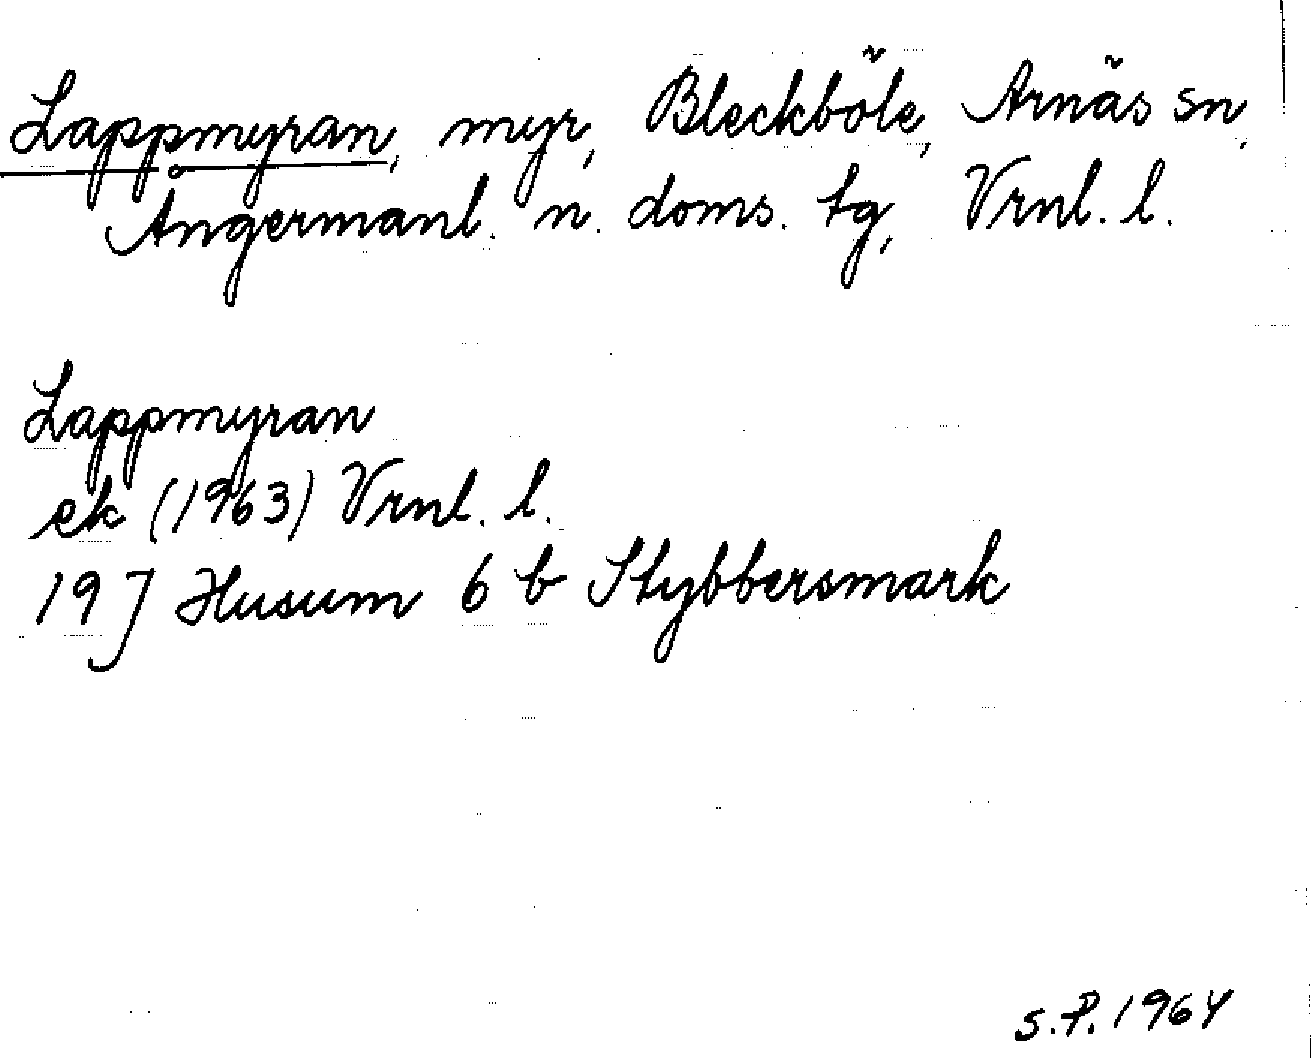 Lappmyran, myr, Bleckböle, Arnäs sn,
Ångermanl. n. doms. tg, Vrnl. l.
Lappmyran
ek (1963) Vrnl. l.
19 J Husum 6 b Stybbersmark
S.P. 1964